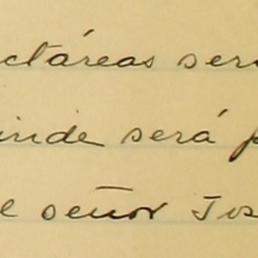 ctáreas ser
inde será p
l señor Jos